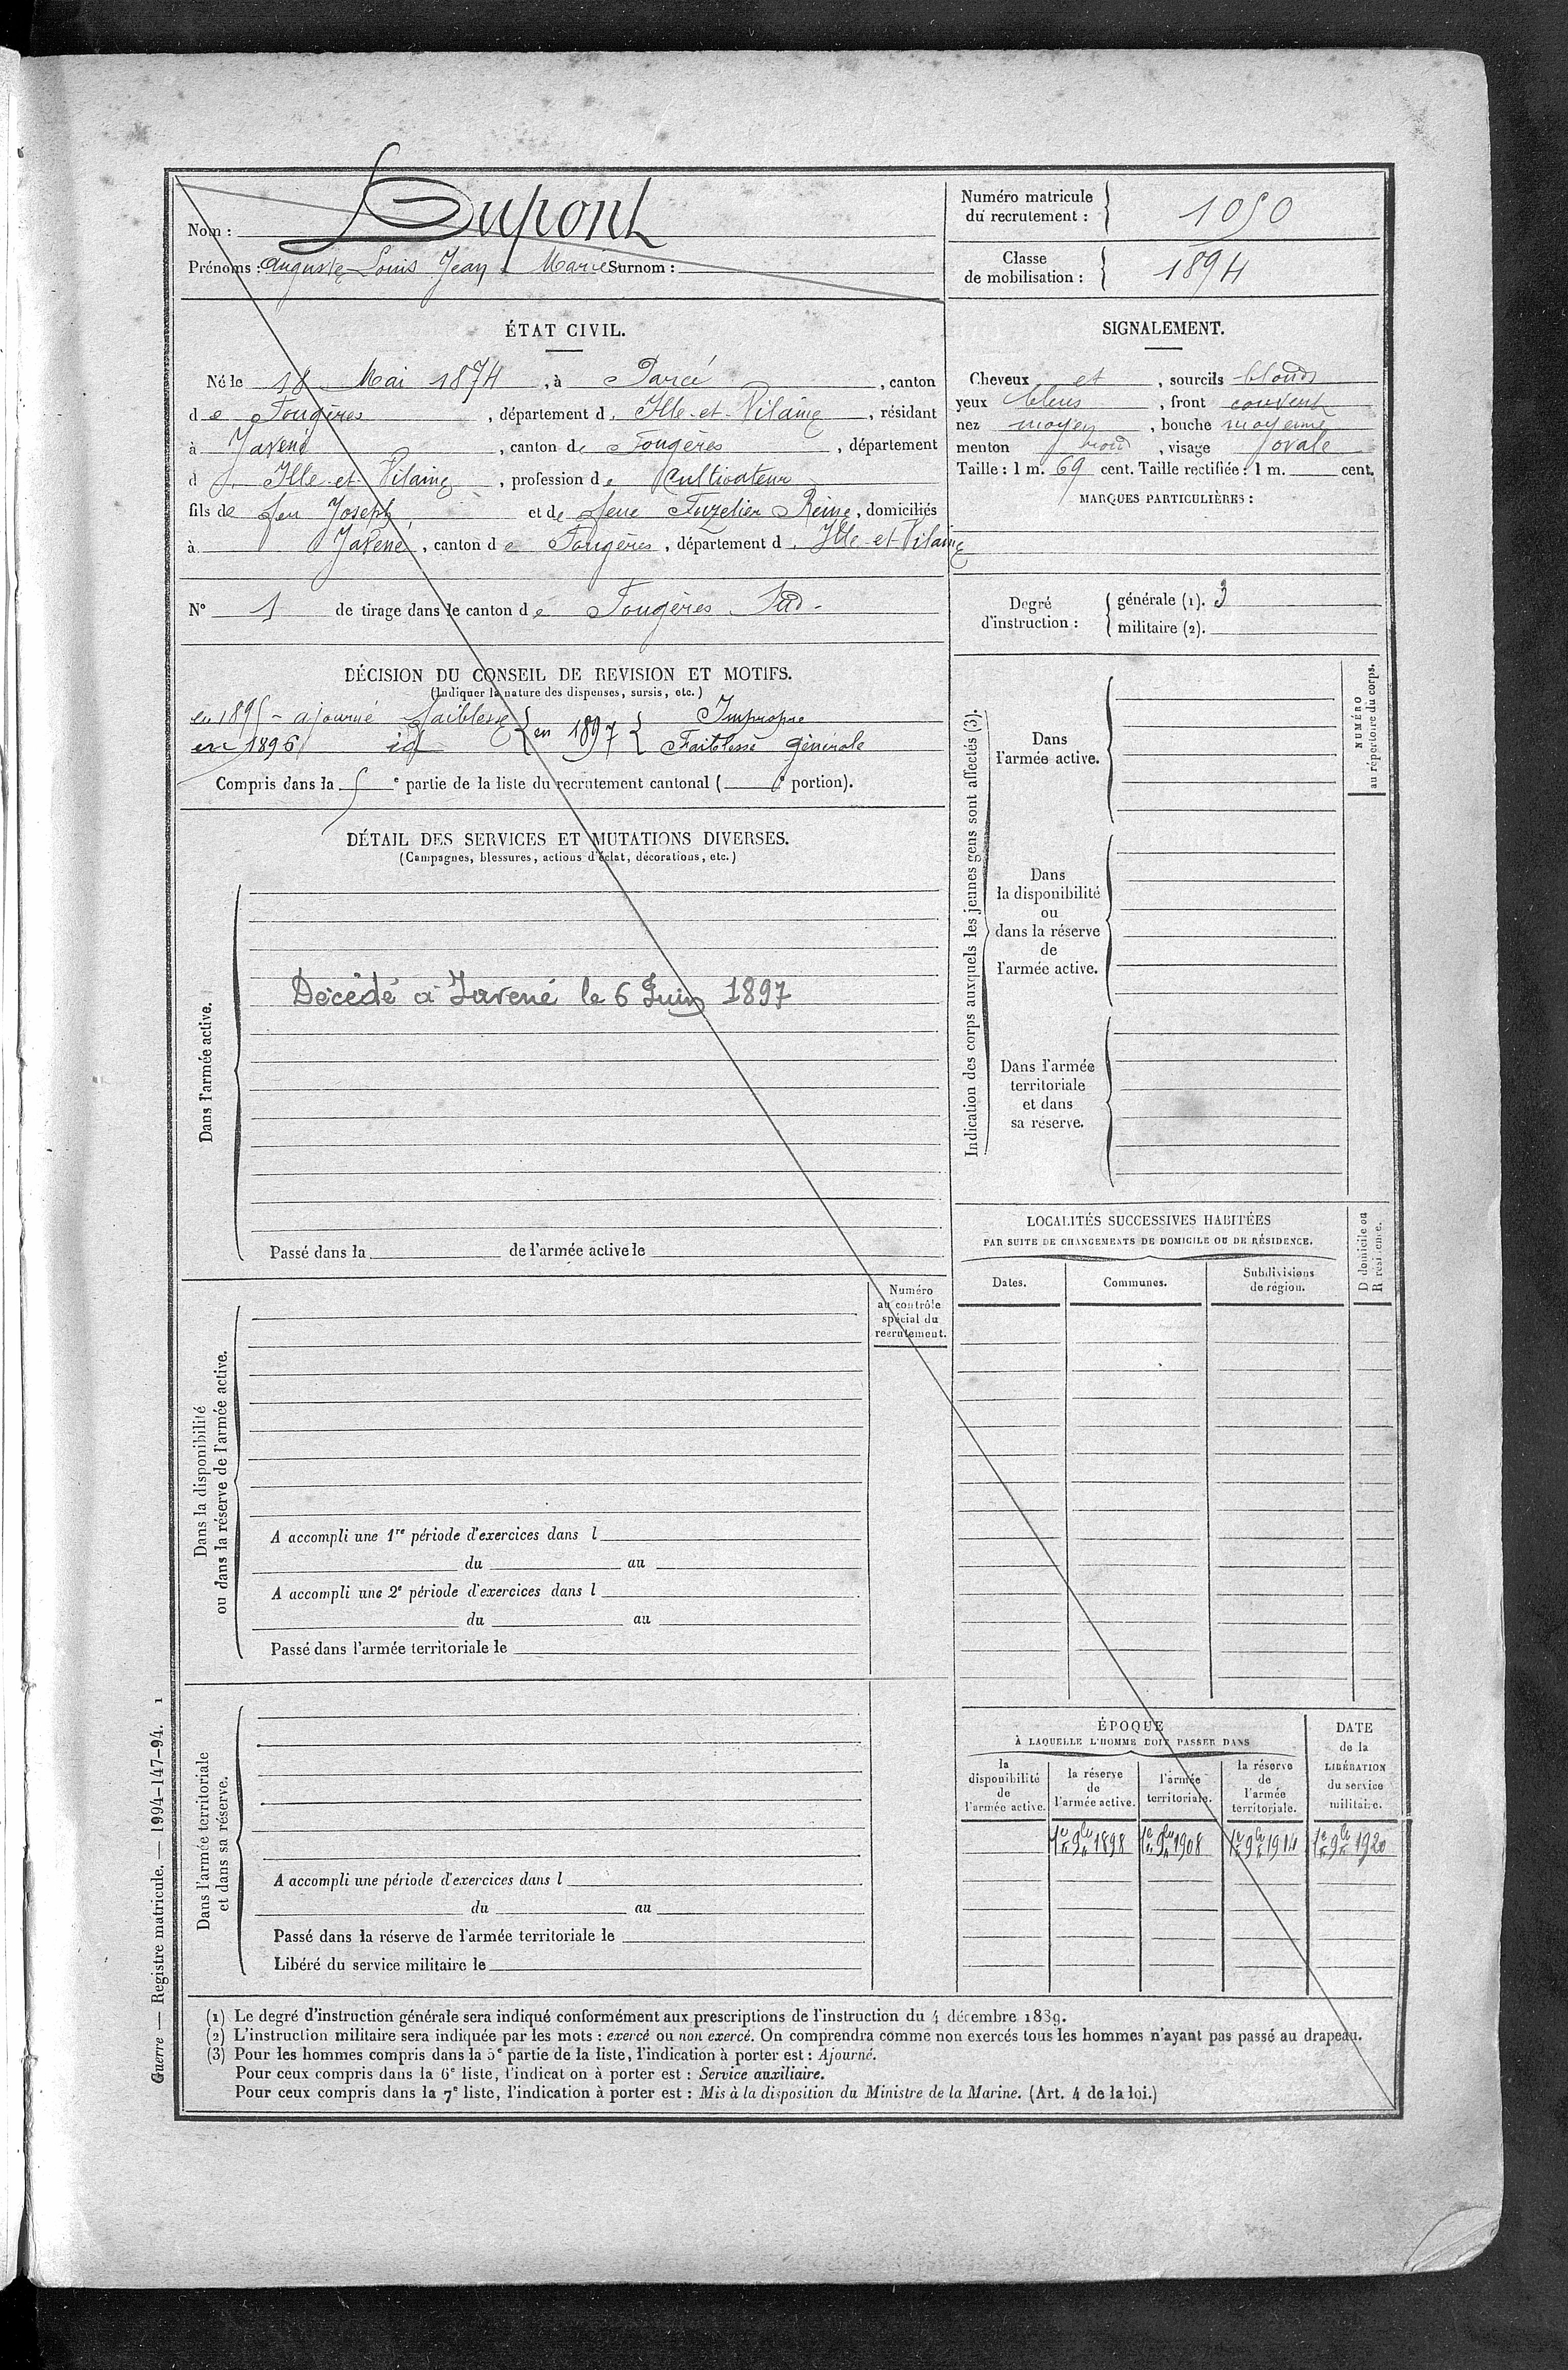 Nom : Dupont
Prénoms : Auguste Louis Jean Marie Surnom :
Numéro matricule du recrutement : 1050
Classe de mobilisation : 1894
ÉTAT CIVIL.
Né le 18 Mai 1874, à Parcé, canton
de Fougères, département d. Ille-et-Vilaine, résidant
à Javené, canton de Fougères, département
d'Ille-et-Vilaine, profession de Cultivateur
fils de feu Joseph et de feue Fuzelier Reine, domiciliés
à Javené, canton de Fougères, département d. Ille-et-Vilaine
N° 1 de tirage dans le canton de Fougères Sud.
SIGNALEMENT.
Cheveux et, sourcils blonds
yeux bleus, front couvert
nez moyen, bouche moyenne
menton rond, visage ovale
Taille : 1 m. 69 cent. Taille rectifiée : 1 m. cent.
MARQUES PARTICULIÈRES :
Degré d'instruction :
générale (1). 3
militaire (2).
DÉCISION DU CONSEIL DE REVISION ET MOTIFS.
(Indiquer la nature des dispenses, sursis, etc.)
en 1895 - ajourné faiblesse } en 1897 { Impropre
en 1896 id Faiblesse générale
Compris dans la 5e partie de la liste du recrutement cantonal ( e portion).
DÉTAIL DES SERVICES ET MUTATIONS DIVERSES.
(Campagnes, blessures, actions d'éclat, décorations, etc.)
Dans l'armée active.
Décédé à Javené le 6 Juin 1897
Passé dans la de l'armée active le
Indication des corps auxquels les jeunes gens sont affectés (3).
Dans
l'armée active.
Dans
la disponibilité
ou
dans la réserve
de
l'armée active.
Dans l'armée
territoriale
et dans
sa réserve.
NUMÉRO
au répertoire du corps.
LOCALITÉS SUCCESSIVES HABITÉES
PAR SUITE DE CHANGEMENTS DE DOMICILE OU DE RÉSIDENCE.
Dates.
Communes.
Subdivisions de région.
D domicile ou
R résidence.
Dans la disponibilité
ou dans la réserve de l'armée active.
Numéro
au contrôle
spécial du
recrutement.
A accompli une 1re période d'exercices dans l
du au
A accompli une 2e période d'exercices dans l
du au
Passé dans l'armée territoriale le
Dans l'armée territoriale
et dans sa réserve.
A accompli une période d'exercices dans l
du au
Passé dans la réserve de l'armée territoriale le
Libéré du service militaire le
ÉPOQUE
À LAQUELLE L'HOMME DOIT PASSER DANS
la disponibilité de l'armée active.
la réserve de l'armée active.
l'armée territoriale.
la réserve de l'armée territoriale.
DATE de la LIBÉRATION du service militaire.
1er 9bre 1898 1er 9bre 1908 1er 9bre 1914 1er 9bre 1920
(1) Le degré d'instruction générale sera indiqué conformément aux prescriptions de l'instruction du 4 décembre 1889.
(2) L'instruction militaire sera indiquée par les mots : exercé ou non exercé. On comprendra comme non exercés tous les hommes n'ayant pas passé au drapeau.
(3) Pour les hommes compris dans la 5e partie de la liste, l'indication à porter est : Ajourné.
Pour ceux compris dans la 6e liste, l'indication à porter est : Service auxiliaire.
Pour ceux compris dans la 7e liste, l'indication à porter est : Mis à la disposition du Ministre de la Marine. (Art. 4 de la loi.)
Guerre — Registre matricule. — 1994-147-94. 1